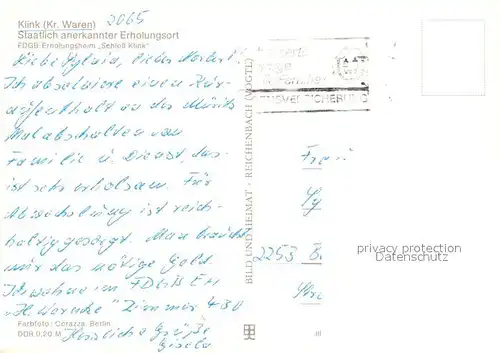 Klink (Kr. Waren) 2065
Staatlich anerkannter Erholungsort
FDGB-Erholungsheim „Schloß Klink"
Liebe Sylvia, lieber Norbert!
Ich absolviere einen Kur-
aufenthalt an der Müritz
Mal abschalten von
Familie u. Dienst, das
ist sehr erholsam. Für
Abwechslung ist reich-
haltig gesorgt. Man braucht
nur das nötige Geld.
Ich wohne im FDGB EH
"H. Warnke" Zimmer 430
Herzliche Grüße
Gisela
Farbfoto: Corazza, Berlin
DDR 0,20 M
BILD UND HEIMAT · REICHENBACH (VOGTL)
Frau
Sy
2253 B
Str
privacy protection
Datenschutz